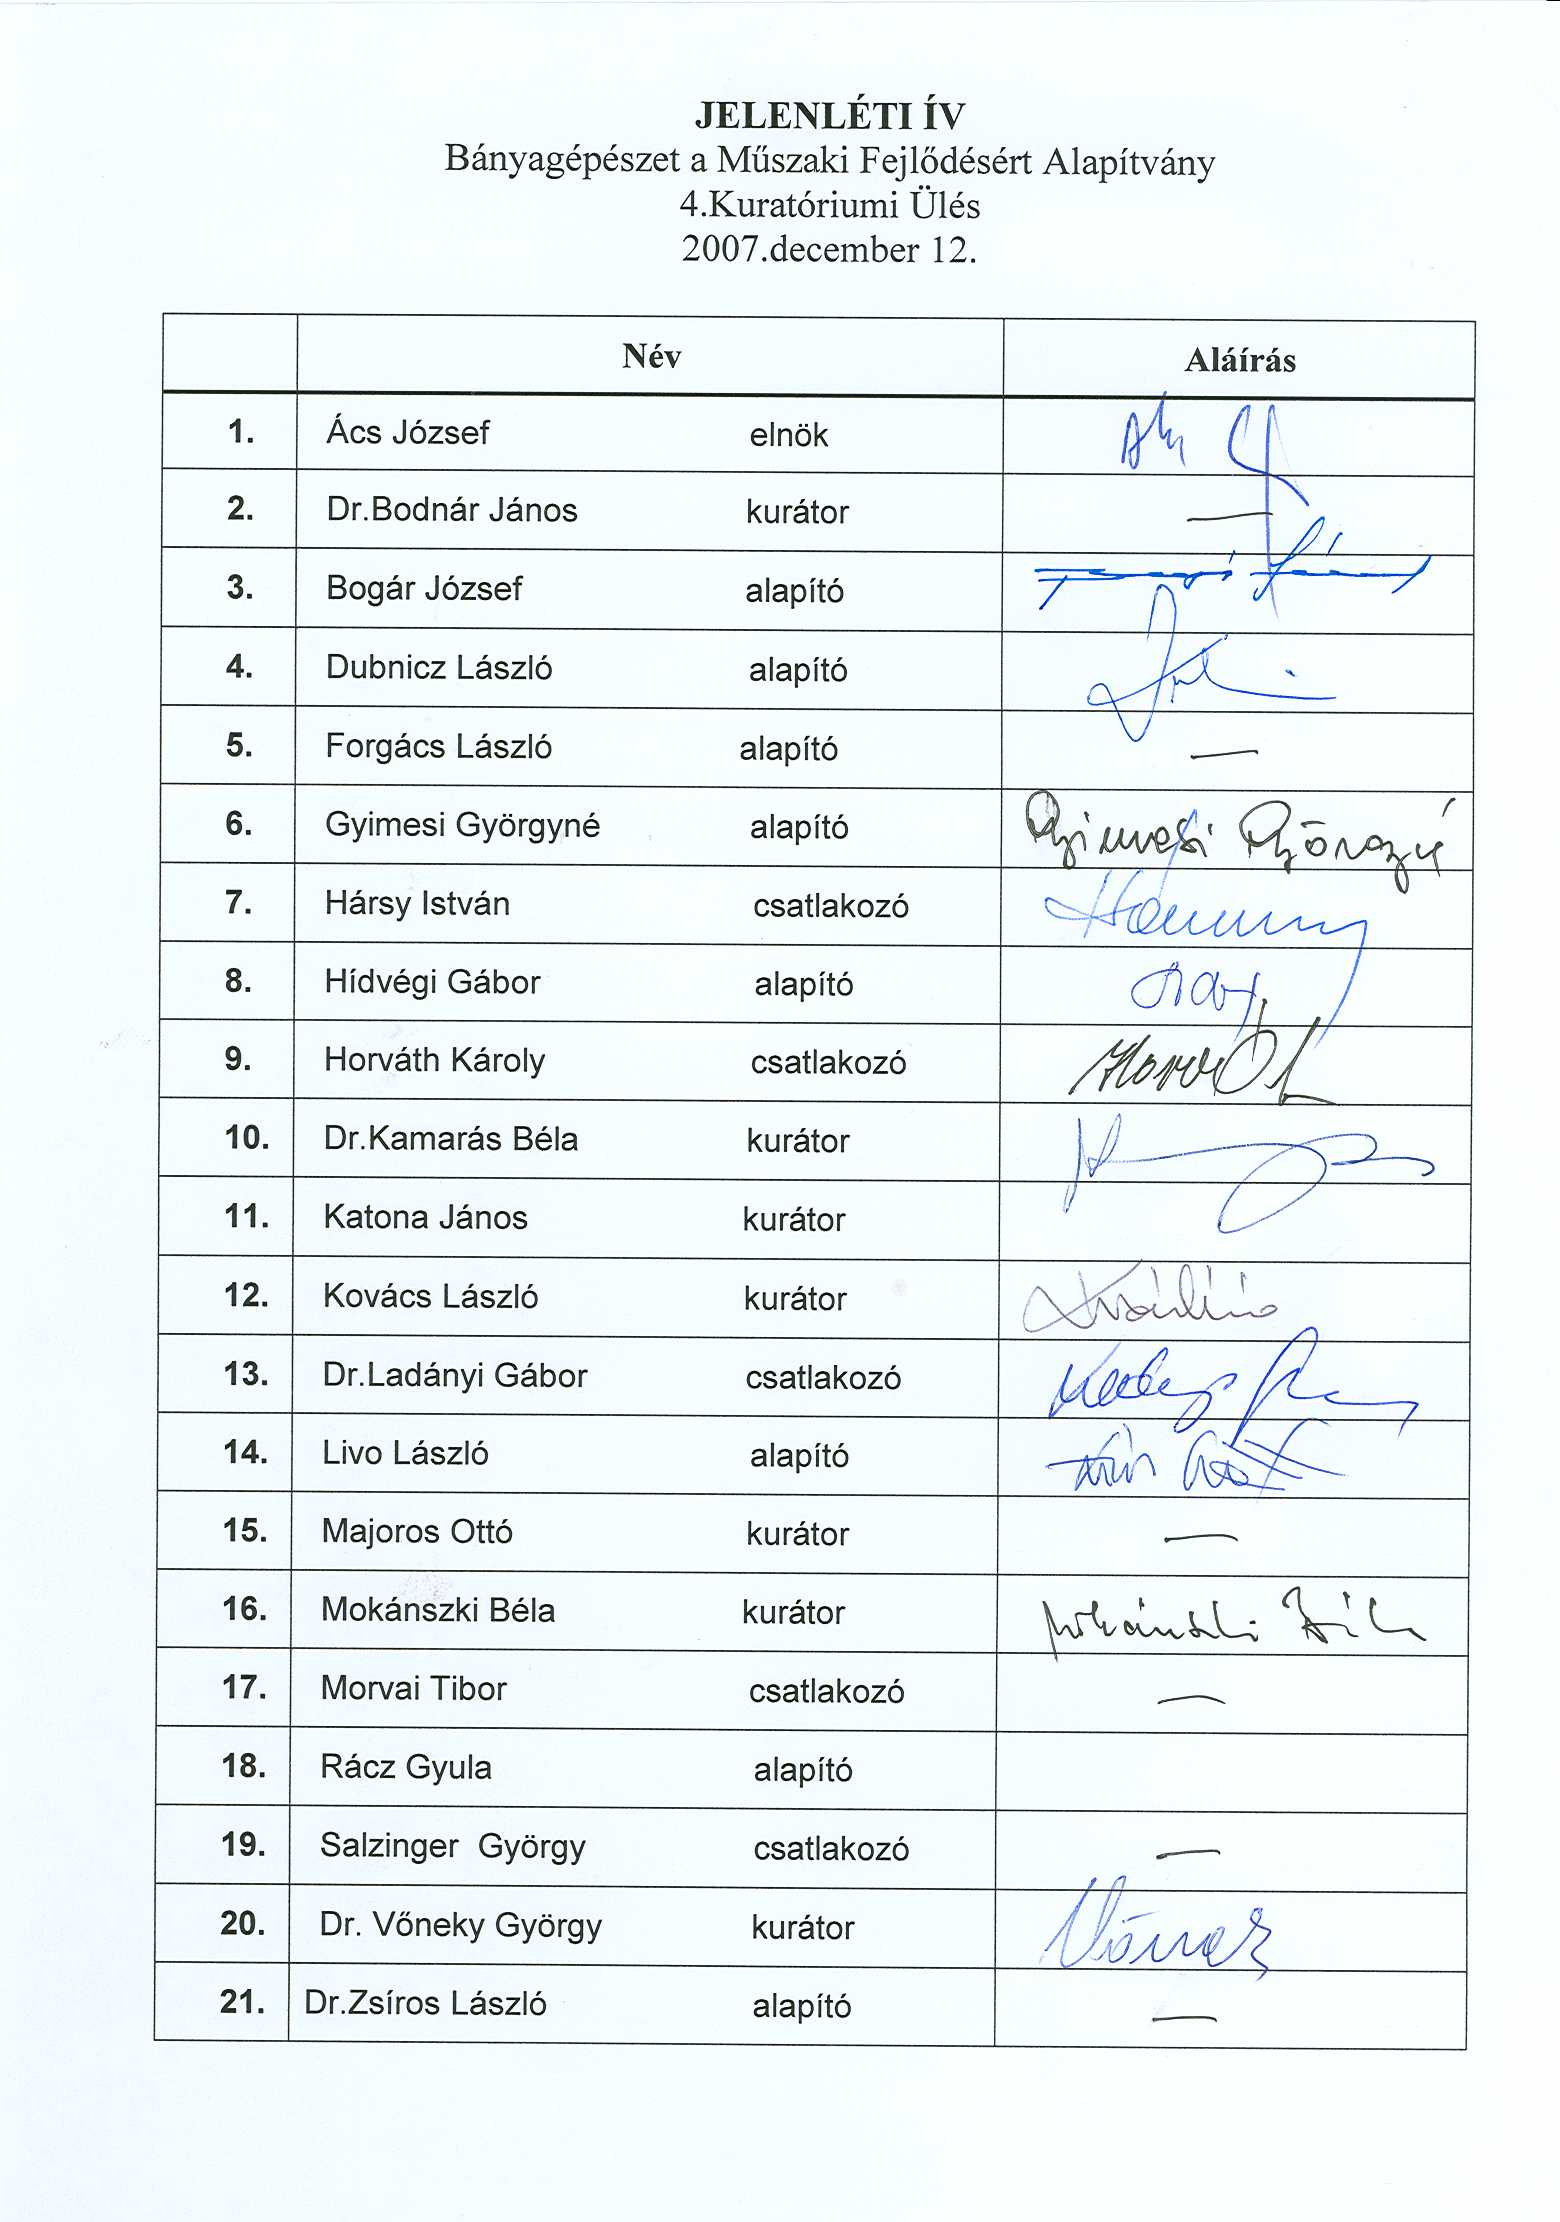 JELENLÉTI ÍV
Bányagépészet a Műszaki Fejlődésért Alapítvány
4.Kuratóriumi Ülés
2007.december 12.
Név Aláírás
1. Ács József elnök
2. Dr.Bodnár János kurátor —
3. Bogár József alapító
4. Dubnicz László alapító
5. Forgács László alapító —
6. Gyimesi Györgyné alapító Gyimesi Györgyné
7. Hársy István csatlakozó
8. Hídvégi Gábor alapító
9. Horváth Károly csatlakozó
10. Dr.Kamarás Béla kurátor
11. Katona János kurátor
12. Kovács László kurátor
13. Dr.Ladányi Gábor csatlakozó
14. Livo László alapító
15. Majoros Ottó kurátor —
16. Mokánszki Béla kurátor Mokánszki Béla
17. Morvai Tibor csatlakozó —
18. Rácz Gyula alapító
19. Salzinger György csatlakozó —
20. Dr. Vőneky György kurátor
21. Dr.Zsíros László alapító —